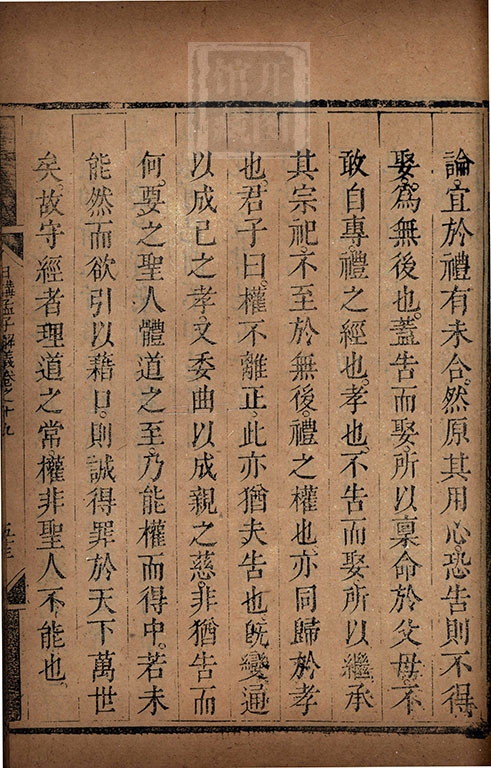 論。宜於禮有未合。然原其用心。恐告則不得
娶。為無後也。蓋告而娶。所以稟命於父母。不
敢自專。禮之經也。孝也。不告而娶。所以繼承
其宗祀。不至於無後。禮之權也。亦同歸於孝
也。君子曰。權不離正。此亦猶夫告也。旣變通
以成己之孝。又委曲以成親之慈。非猶告而
何。要之聖人體道之至。乃能權而得中。若未
能然而欲引以藉口。則誠得罪於天下萬世
矣。故守經者理道之常。權非聖人不能也。
日講孟子解義卷之十九
五十三